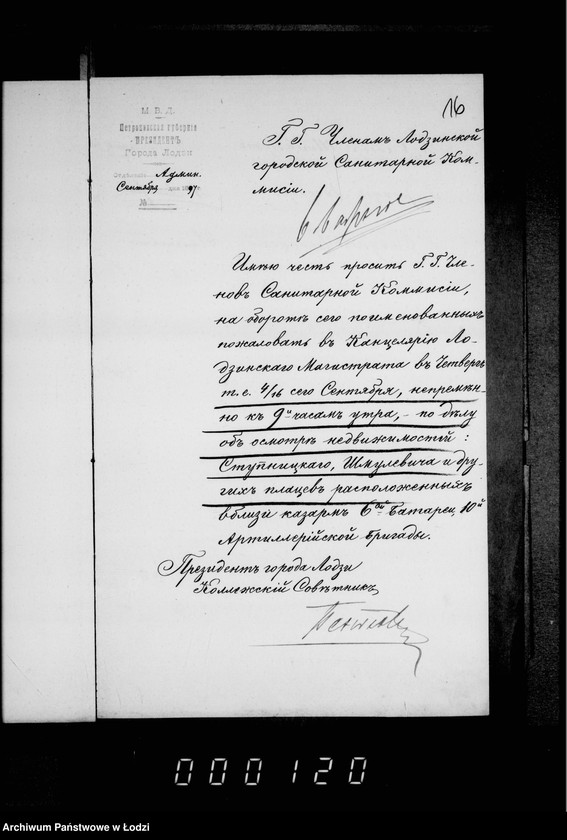 16
М. В. Д.
Петроковская губернія
ПРЕЗИДЕНТЪ
Города Лодзи
Админ.
Сентября дня 97
№
Г. Г. Членамъ Лодзинской
городской Санитарной Ком-
мисіи.
Имѣю честь просить Г. Г. Чле-
новъ Санитарной Коммисіи,
на оборотѣ сего поименованныхъ
пожаловать въ Канцелярію Ло-
дзинскаго Магистрата въ Четвергъ
т. е. 4/16 сего Сентября, непремѣн-
но къ 9и часамъ утра, - по дѣлу
объ осмотрѣ недвижимостей:
Ступницкаго, Шмулевича и дру-
гихъ плацевъ расположенныхъ
вблизи казармъ 6ой Батареи, 10й
Артиллерійской Бригады.
Президентъ города Лодзи
Коллежскій Совѣтникъ
0000120
Archiwum Państwowe w Łodzi